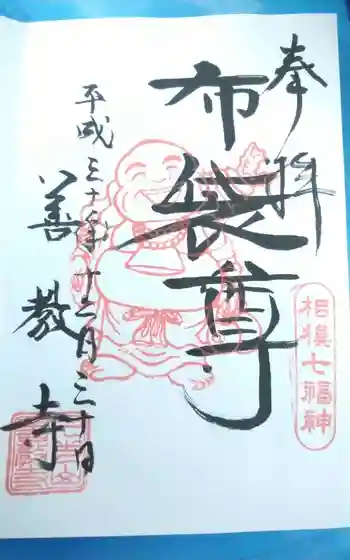 奉拝
相模七福神
布袋尊
平成三十年十二月三十日
善教寺